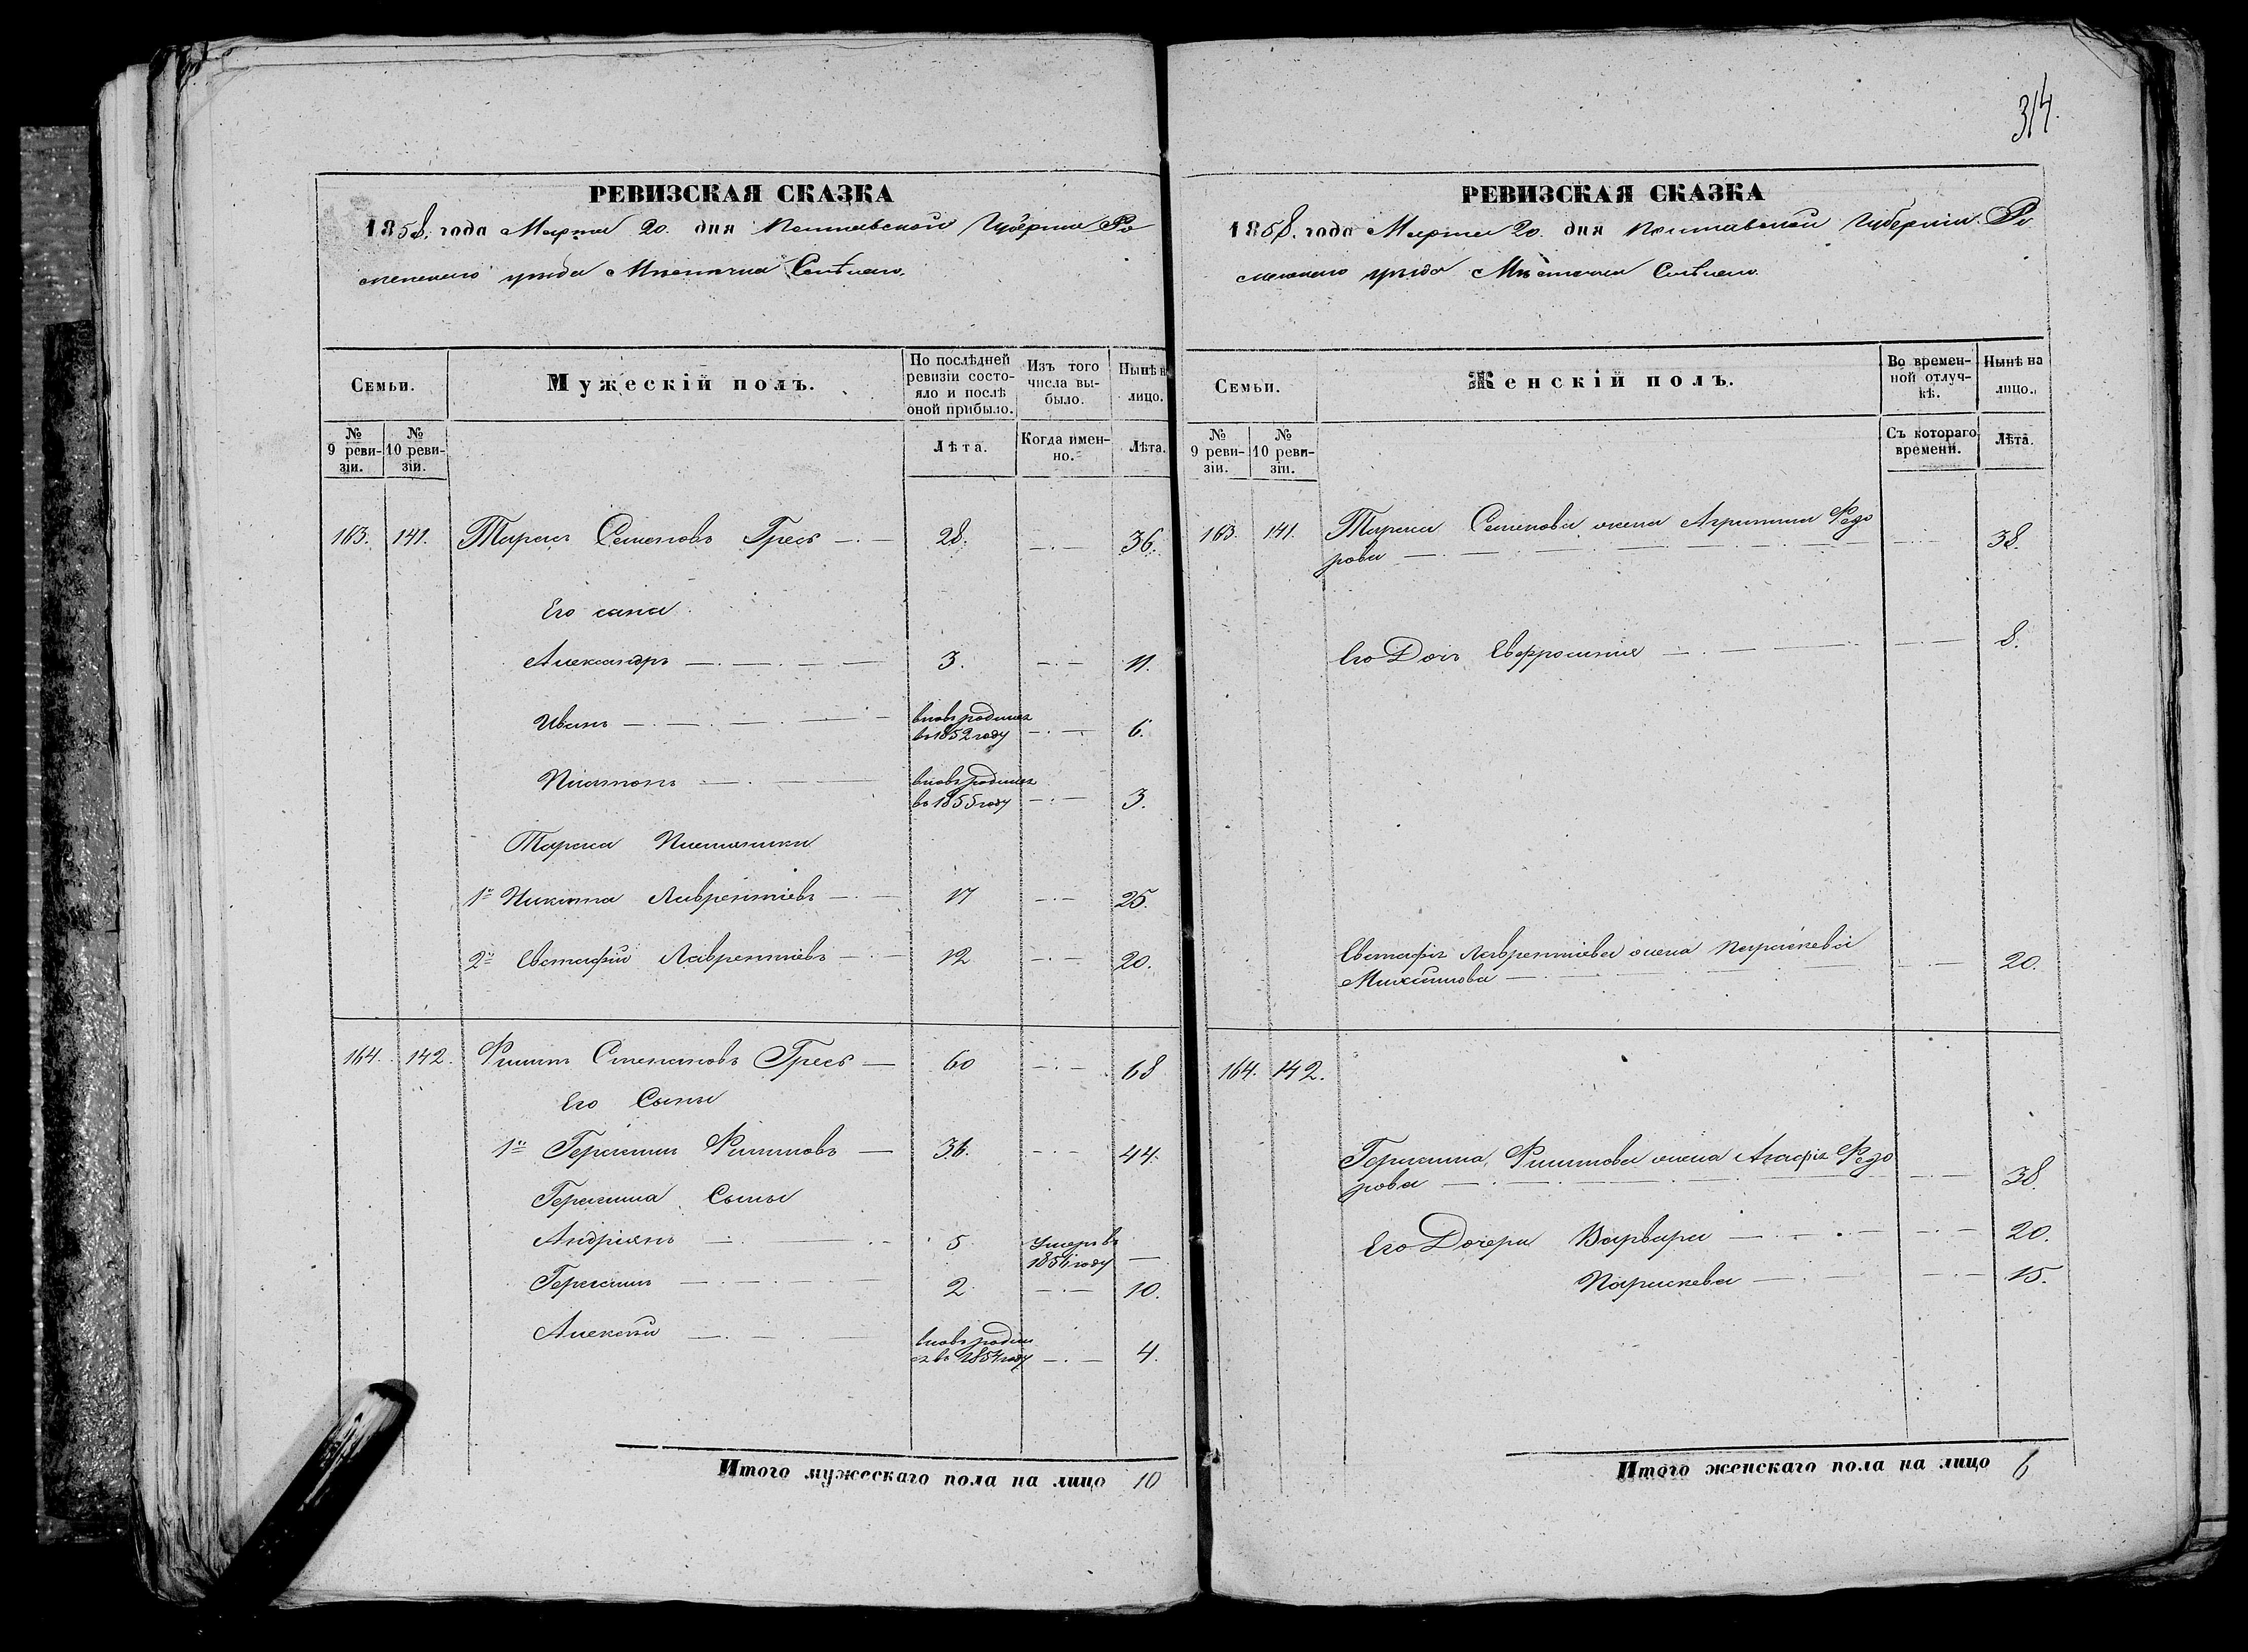 314.
РЕВИЗСКАЯ СКАЗКА
1858. года Марта 20. дня Полтавской Губернии Ро
менского уѣзда Мѣстечка Смѣлаго.
Семьи.
Мужескій полъ.
По послѣдней ревизіи состояло и послѣ оной прибыло.
Изъ того числа выбыло.
Нынѣ н лицо.
№ 9 ревизіи.
№ 10 ревизіи.
Лѣта.
Когда именно.
Лѣта.
163. 141. Тарасъ Семеновъ Гресь — 28. — 36.
Его сына
Александръ — 3. — 11.
Иванъ — вновь родился въ 1852 году — 6.
Платонъ — вновь родился въ 1855 году — 3.
Тараса Племянники
1й Никита Лаврентіевъ — 17 — 25.
2й Евстафій Лаврентіевъ — 12 — 20.
164. 142. Филипъ Степановъ Гресь — 60 — 68
Его Сыны
1й Герасимъ Филиповъ — 36. — 44.
Герасима Сыны
Андріянъ — 5 Умеръ въ году —
Герасимъ — 2 — 10.
Алексѣй — вновь родился въ 1854 году — 4.
Итого мужескаго пола на лицо 10
РЕВИЗСКАЯ СКАЗКА
1858. года Марта 20. дня Полтавской Губерніи Ро
менского уѣзда Мѣстечка Смѣлаго.
Семьи.
Женскій полъ.
Во временной отлучкѣ.
Нынѣ на лицо.
№ 9 ревизіи.
№ 10 ревизіи.
Съ котораго времени.
Лѣта.
163. 141. Тараса Семенова жена Агрипина Федо
рова — 38.
Его Дочь Евфросинія — 8.
Евстафія Лаврентіева жена Параскевія
Максимова — 20.
164. 142.
Герасима Филипова жена Агафія Федо
рова — 38
Его Дочери Варвара — 20.
Параскева — 15.
Итого женскаго пола на лицо 6